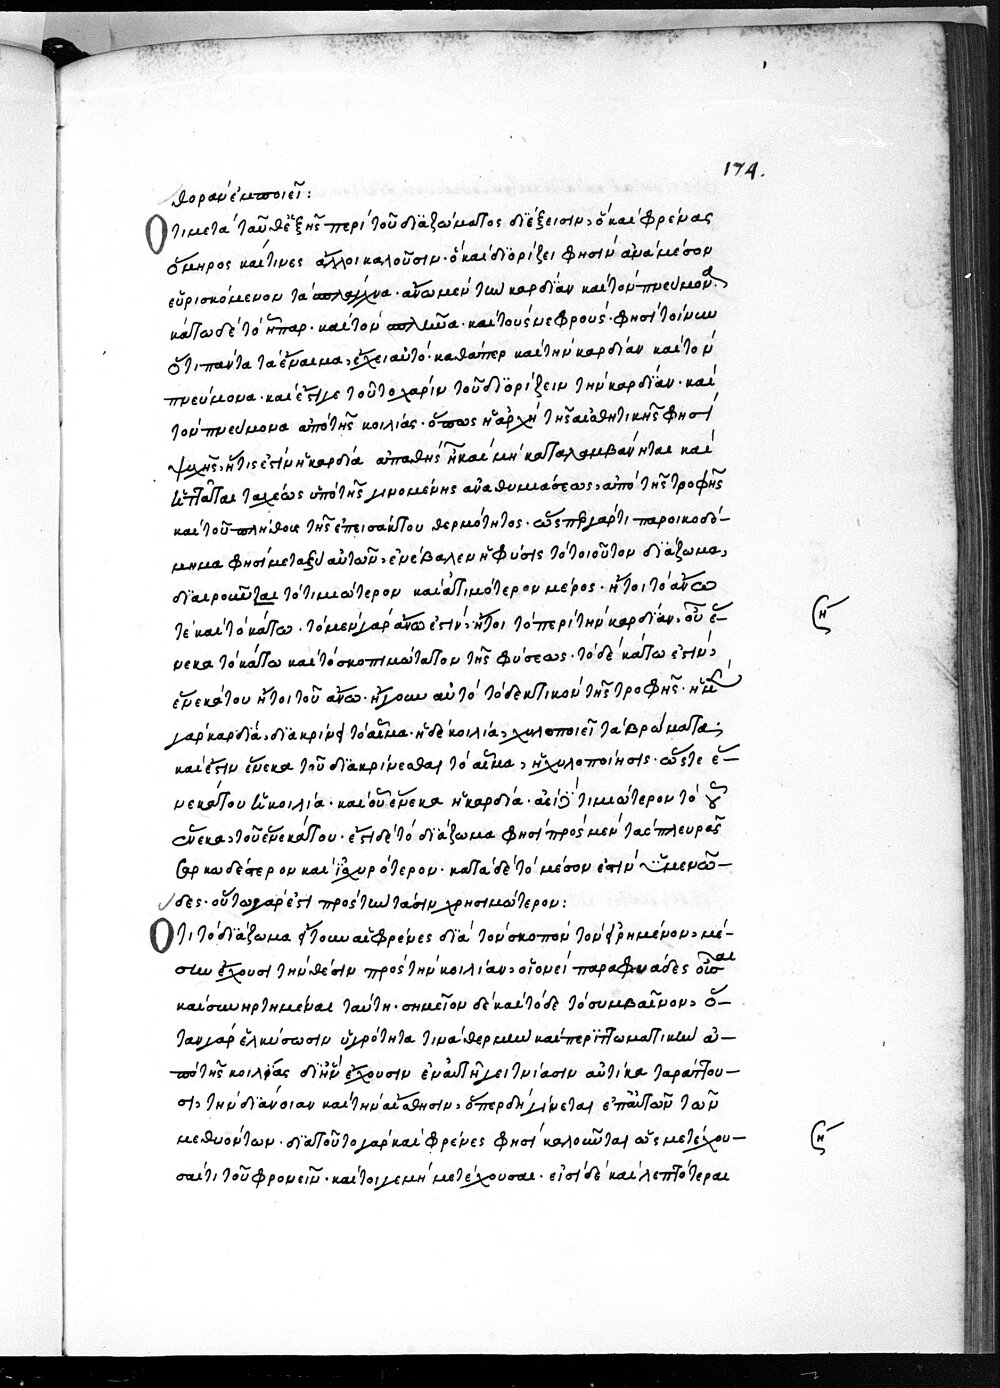 174.
θορὰν ἐμποιεῖ:
Ὅτι μετὰ ταῦθ' ἑξῆς περὶ τοῦ διαζώματος διέξεισιν, ὃ καὶ φρένας
ὅμηρος καί τινες ἄλλοι καλοῦσιν· ὃ καὶ διορίζει φησὶν ἀνάμέσον
εὑρισκόμενον τὰ σπλάγχνα· ἄνω μὲν τὴν καρδίαν καὶ τὸν πνεύμονα,
κάτω δὲ τὸ ἧπαρ· καὶ τὸν σπλῆνα· καὶ τοὺς νεφρούς· φησὶ τοίνυν
ὅτι πάντα τὰ ἔναιμα, ἔχει αὐτό· καθάπερ καὶ τὴν καρδίαν καὶ τὸν
πνεύμονα· καὶ ἔστι γε τοῦτο χάριν τοῦ διορίζειν τὴν καρδίαν· καὶ
τὸν πνεύμονα ἀπὸ τῆς κοιλίας· ὅπως ἡ ἀρχὴ τῆς αἰσθητικῆς φησὶ
ψυχῆς, ἥτις ἐστὶν ἡ καρδία ἀπαθὴς ᾖ καὶ μὴ καταλαμβάνηται καὶ
ἡττᾶται ταχέως ὑπὸ τῆς γινομένης ἀναθυμιάσεως, ἀπὸ τῆς τροφῆς
καὶ τοῦ πλήθους τῆς ἐπεισάκτου θερμότητος· ὥσπερ γάρ τι παροικοδό-
μημα φησὶ μεταξὺ αὐτῶν, ἐνέβαλεν ἡ φύσις τὸ τοιοῦτον διάζωμα,
διαιροῦσα τὸ τιμιώτερον καὶ ἀτιμότερον μέρος· ἤτοι τὸ ἄνω
τὲ καὶ τὸ κάτω· τὸ μὲν γὰρ ἄνω ἐστὶν, ἤτοι τὸ περὶ τὴν καρδίαν, οὗ ἕ-
νεκα τὸ κάτω καὶ τὸ σκοπιμώτατον τῆς φύσεως· τὸ δὲ κάτω ἐστὶν,
ἕνεκά του ἤτοι τοῦ ἄνω· ἤγουν αὐτὸ τὸ δεκτικὸν τῆς τροφῆς· ἡ μὲν
γὰρ καρδία, διακρίνει τὸ αἷμα· ἡ δὲ κοιλία, χυλοποιεῖ τὰ βρώματα,
καὶ ἔστιν ἕνεκα τοῦ διακρίνεσθαι τὸ αἷμα, ἡ χυλοποίησις· ὥστε ἕ-
νεκά του ἡ κοιλία· καὶ οὗ ἕνεκα ἡ καρδία· ἀεὶ δὲ τιμιώτερον τὸ οὗ
ἕνεκα, τοῦ ἕνεκά του· ἔστι δὲ τὸ διάζωμα φησὶ πρὸς μὲν τὰς πλευρὰς
σαρκωδέστερον καὶ ἰσχυρότερον· κατὰ δὲ τὸ μέσον ἐστὶν ὑμενῶ-
δες· οὕτω γάρ ἐστι πρὸς τὴν τάσιν χρησιμώτερον:
Ὅτι τὸ διάζωμα ἤτουν αἱ φρένες διὰ τὸν σκοπὸν τὸν εἰρημένον, μέ-
σην ἔχουσι τὴν θέσιν πρὸς τὴν κοιλίαν, οἱονεὶ παραφυάδες οὖσαι
καὶ συνηρτημέναι ταύτῃ· σημεῖον δὲ καὶ τόδε τὸ συμβαῖνον, ὅ-
ταν γὰρ ἑλκύσωσιν ὑγρότητα τινὰ θερμὴν καὶ περιττωματικὴν ἀ-
πὸ τῆς κοιλίας δι' ἣν ἔχουσιν ἐν αὐτῇ γειτνίασιν αὐτίκα ταράττου-
σι, τὴν διάνοιαν καὶ τὴν αἴσθησιν, ὅπερ δὴ γίνεται ἐπ' αὐτῶν τῶν
μεθυόντων· διὰ τοῦτο γὰρ καὶ φρένες φησὶ καλοῦνται ὡς μετέχου-
σαί τι τοῦ φρονεῖν· καίτοι γε μὴ μετέχουσαι· εἰσὶ δὲ καὶ λεπτότεραι